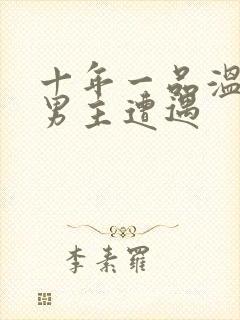 十年一品温
男主遭遇
李素羅